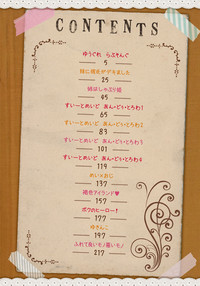 CONTENTS
ゆうぐれ らぷそんぐ
5
妹に彼女ができました
25
姉はしゃぶり姫
45
すいーとめいど あん・どぃとろわ1
65
すいーとめいど あん・どぃとろわ2
83
すいーとめいど あん・どぃとろわ3
101
すいーとめいど あん・どぃとろわ4
119
めい×おじ
137
褐色アイランド♥
157
ボクのヒーロー!
177
ゆきんこ
197
ふれて高いモノ薫いモノ
217